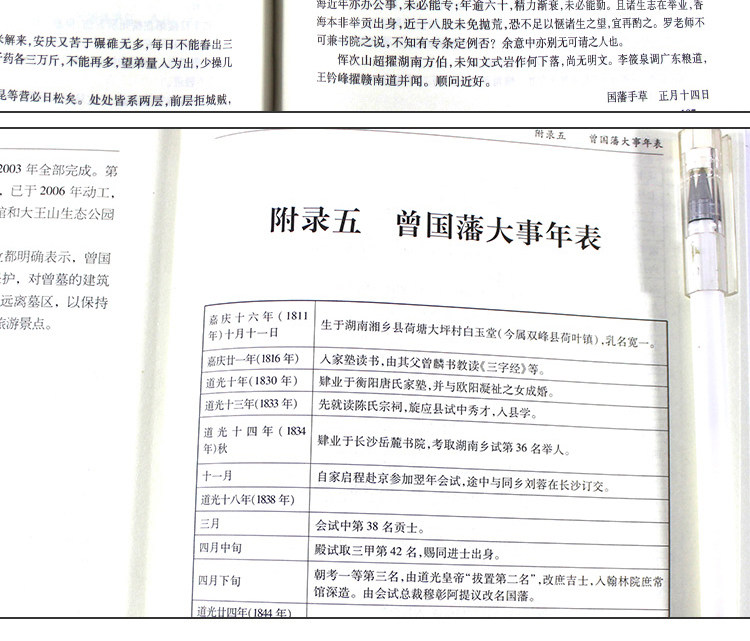 米解来，安庆又苦于碾碓无多，每日不能舂出三
药各三万斤，不能再多，望弟量人为出，少操几
昆等营必日松矣。处处皆系两层，前层拒城贼，
海近年亦办公事，未必能专；年逾六十，精力渐衰，未必能勤。且诸生志在举业，香
海本非举贡出身，近于八股未免抛荒，恐不足以惬诸生之望，宜再酌之。罗老师不
可兼书院之说，不知有专条定例否？余意中亦别无可请之人也。
恽次山超擢湖南方伯，未知文式岩作何下落，尚无明文。李筱泉调广东粮道，
王钤峰擢赣南道并闻。顺问近好。
国藩手草 正月十四日
2003 年全部完成。第
，已于 2006 年动工，
馆和大王山生态公园
都明确表示，曾国
护，对曾墓的建筑
远离墓区，以保持
旅游景点。
附录五 曾国藩大事年表
附录五 曾国藩大事年表
嘉庆十六年（1811
年）十月十一日
生于湖南湘乡县荷塘大坪村白玉堂（今属双峰县荷叶镇），乳名宽一。
嘉庆廿一年（1816 年）
入家塾读书，由其父曾麟书教读《三字经》等。
道光十年（1830 年）
肄业于衡阳唐氏家塾，并与欧阳凝祉之女成婚。
道光十三年（1833 年）
先就读陈氏宗祠，旋应县试中秀才，入县学。
道光十四年（1834
年）秋
肄业于长沙岳麓书院，考取湖南乡试第 36 名举人。
十一月
自家启程赴京参加翌年会试，途中与同乡刘蓉在长沙订交。
道光十八年（1838 年）
三月
会试中第 38 名贡士。
四月中旬
殿试取三甲第 42 名，赐同进士出身。
四月下旬
朝考一等第三名，由道光皇帝“拔置第二名”，改庶吉士，入翰林院庶常
馆深造。由会试总裁穆彰阿提议改名国藩。
道光廿四年（1844 年）